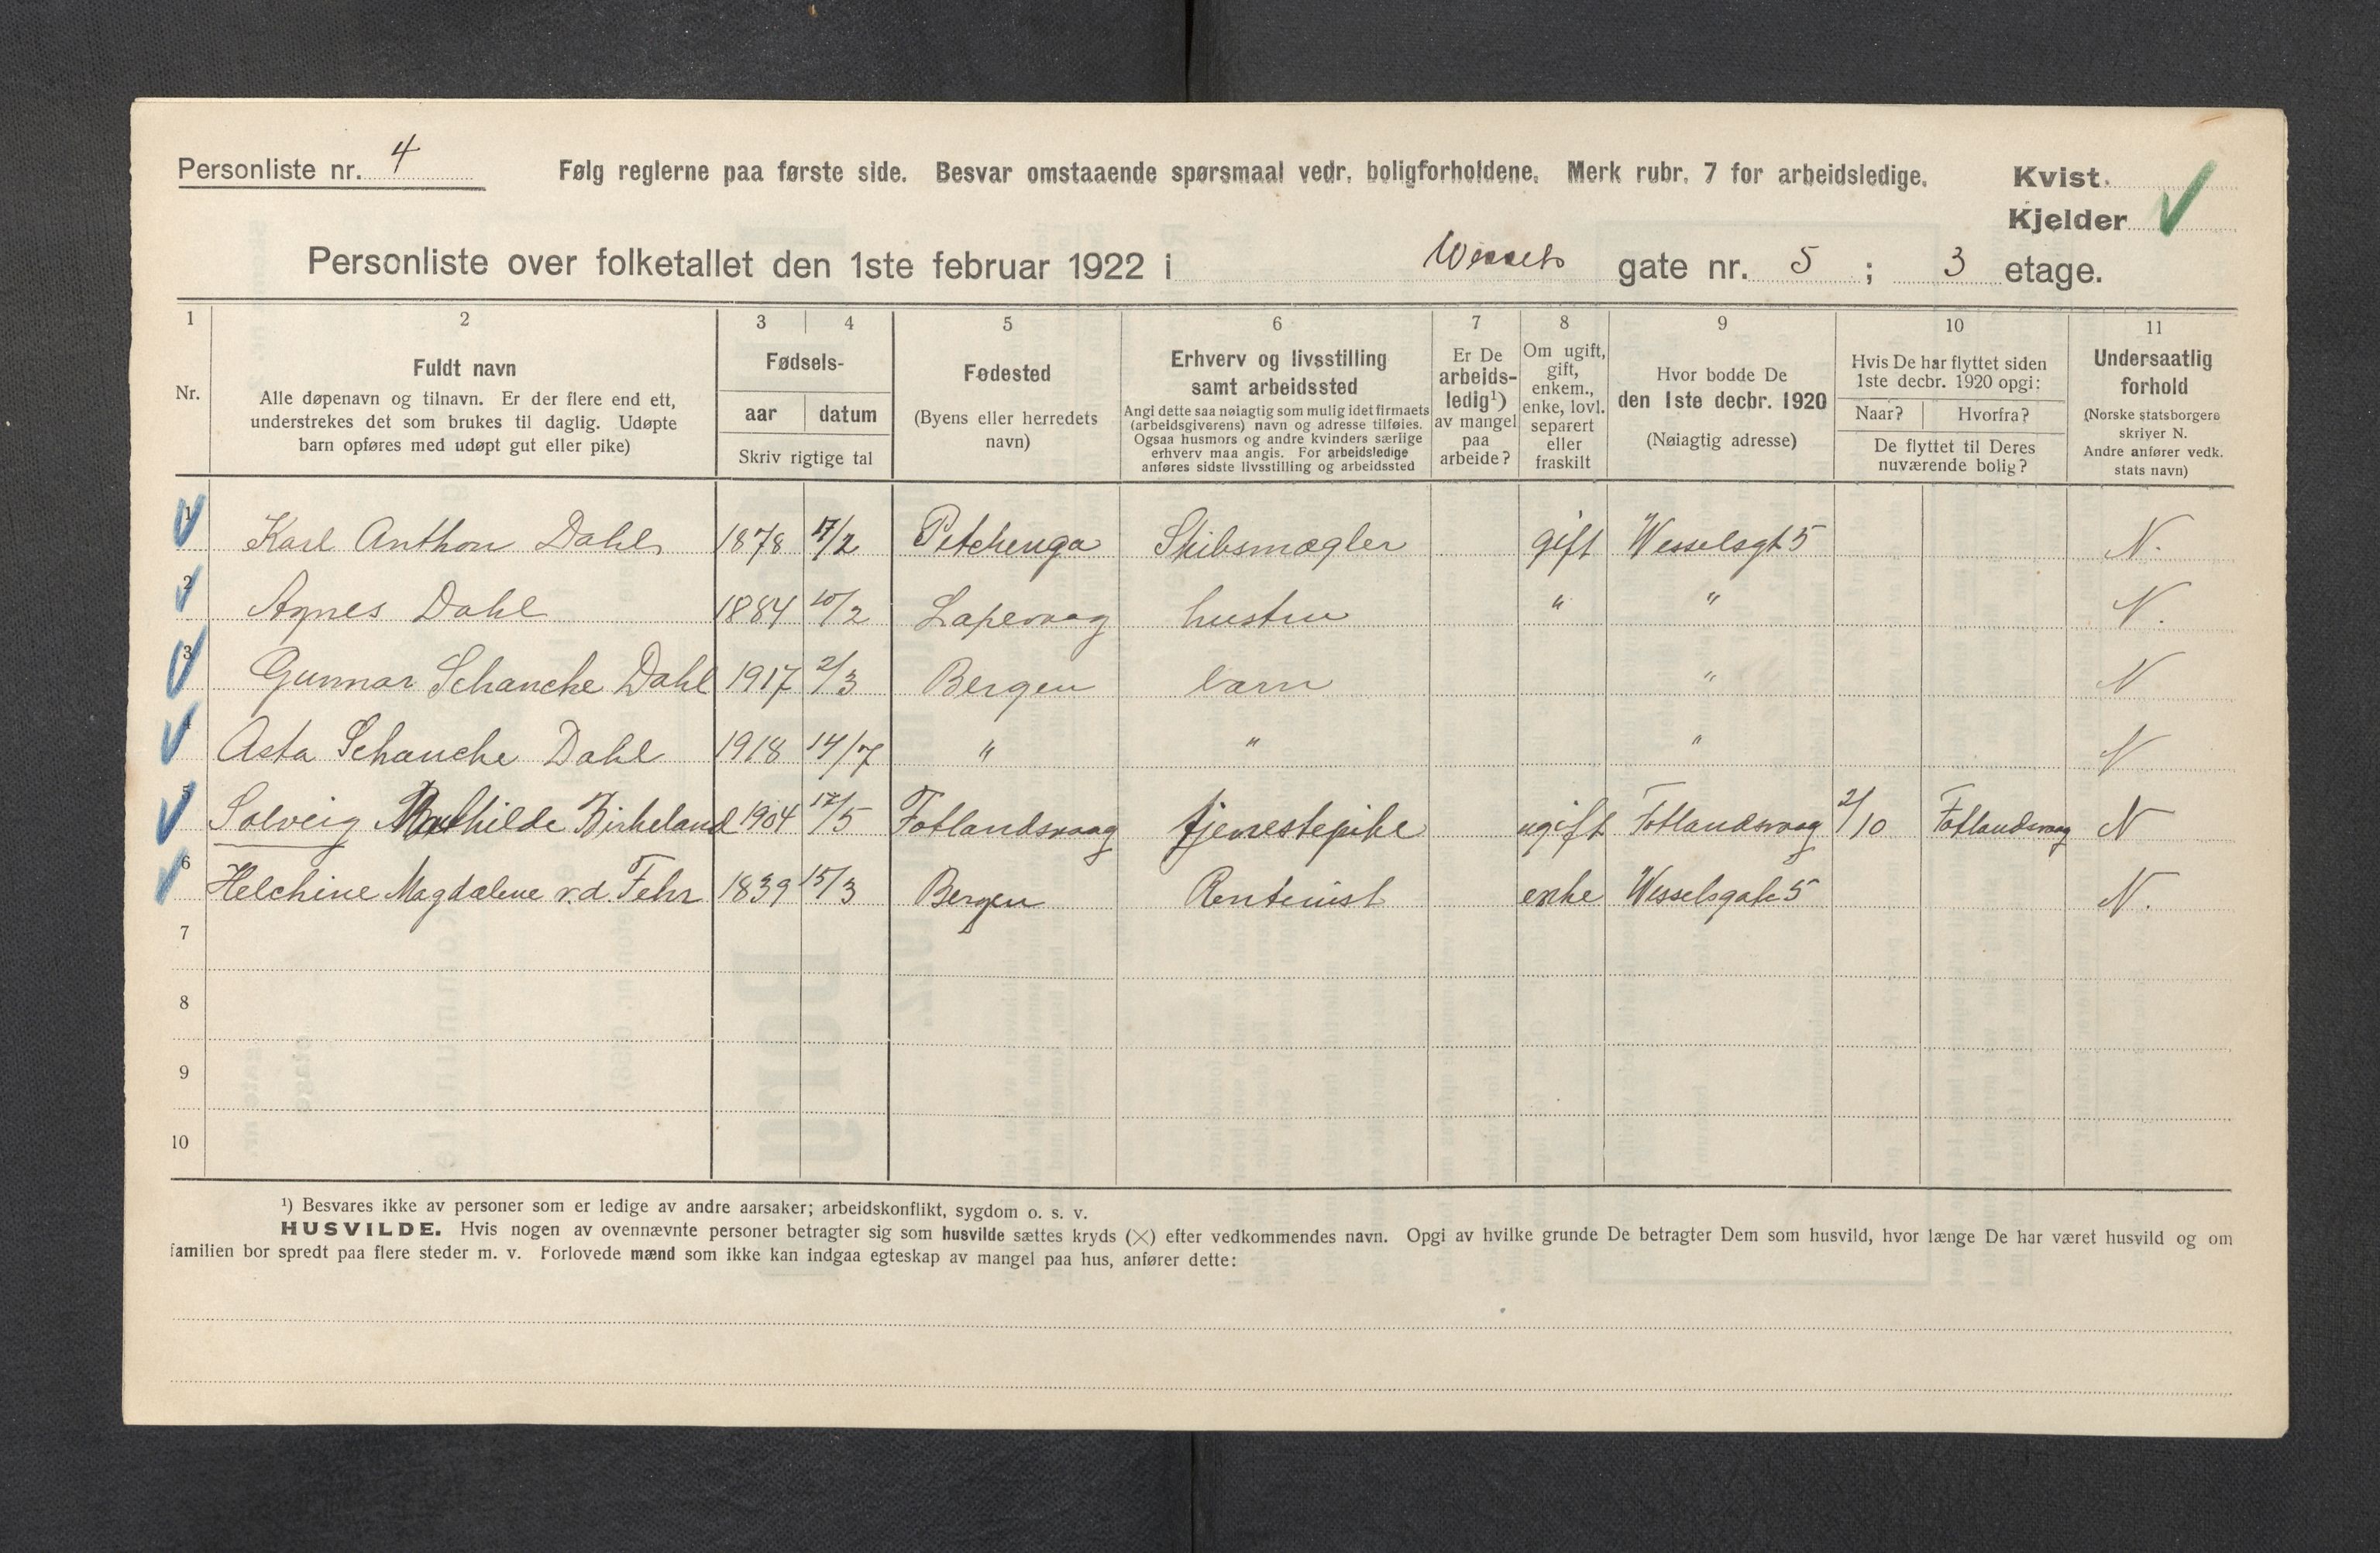 Personliste nr. 4 Følg reglerne paa første side. Besvar omstaaende spørsmaal vedr. boligforholdene. Merk rubr. 7 for arbeidsledige. Kvist
Kjelder
Personliste over folketallet den 1ste februar 1922 i Wessels gate nr. 5 ; 3 etage.
1 2 3 4 5 6 7 8 9 10 11
Nr.
Fuldt navn
Alle døpenavn og tilnavn. Er der flere end ett,
understrekes det som brukes til daglig. Udøpte
barn opføres med udøpt gut eller pike)
Fødsels-
aar datum
Skriv rigtige tal
Fødested
(Byens eller herredets
navn)
Erhverv og livsstilling
samt arbeidssted
Angi dette saa nøiagtig som mulig idet firmaets
(arbeidsgiverens) navn og adresse tilføies.
Ogsaa husmors og andre kvinders særlige
erhverv maa angis. For arbeidsledige
anføres sidste livsstilling og arbeidssted
Er De
arbeids-
ledig¹)
av mangel
paa
arbeide?
Om ugift,
gift,
enkem.,
enke, lovl.
separert
eller
fraskilt
Hvor bodde De
den 1ste decbr. 1920
(Nøiagtig adresse)
Hvis De har flyttet siden
1ste decbr. 1920 opgi:
Naar? Hvorfra?
De flyttet til Deres
nuværende bolig?
Undersaatlig
forhold
(Norske statsborgere
skriver N.
Andre anfører vedk.
stats navn)
1 Karl Anthon Dahl 1878 17/2 Petchenga Skibsmægler gift Wesselsgt 5 N.
2 Agnes Dahl 1884 10/2 Laxevaag hustru " " N.
3 Gunnar Schanche Dahl 1917 2/3 Bergen barn " N
4 Asta Schanche Dahl 1918 14/7 " " " N
5 Solveig Mathilde Birkeland 1904 17/5 Fotlandsvaag tjenestepike ugift Fotlandsvaag 2/10 Fotlandsvaag N
6 Helchine Magdalene v.d. Fehr 1839 15/3 Bergen Rentenist enke Wesselsgate 5 N.
7
8
9
10
¹) Besvares ikke av personer som er ledige av andre aarsaker; arbeidskonflikt, sygdom o. s. v.
HUSVILDE. Hvis nogen av ovennævnte personer betragter sig som husvilde sættes kryds (×) efter vedkommendes navn. Opgi av hvilke grunde De betragter Dem som husvild, hvor længe De har været husvild og om
familien bor spredt paa flere steder m. v. Forlovede mænd som ikke kan indgaa egteskap av mangel paa hus, anfører dette: